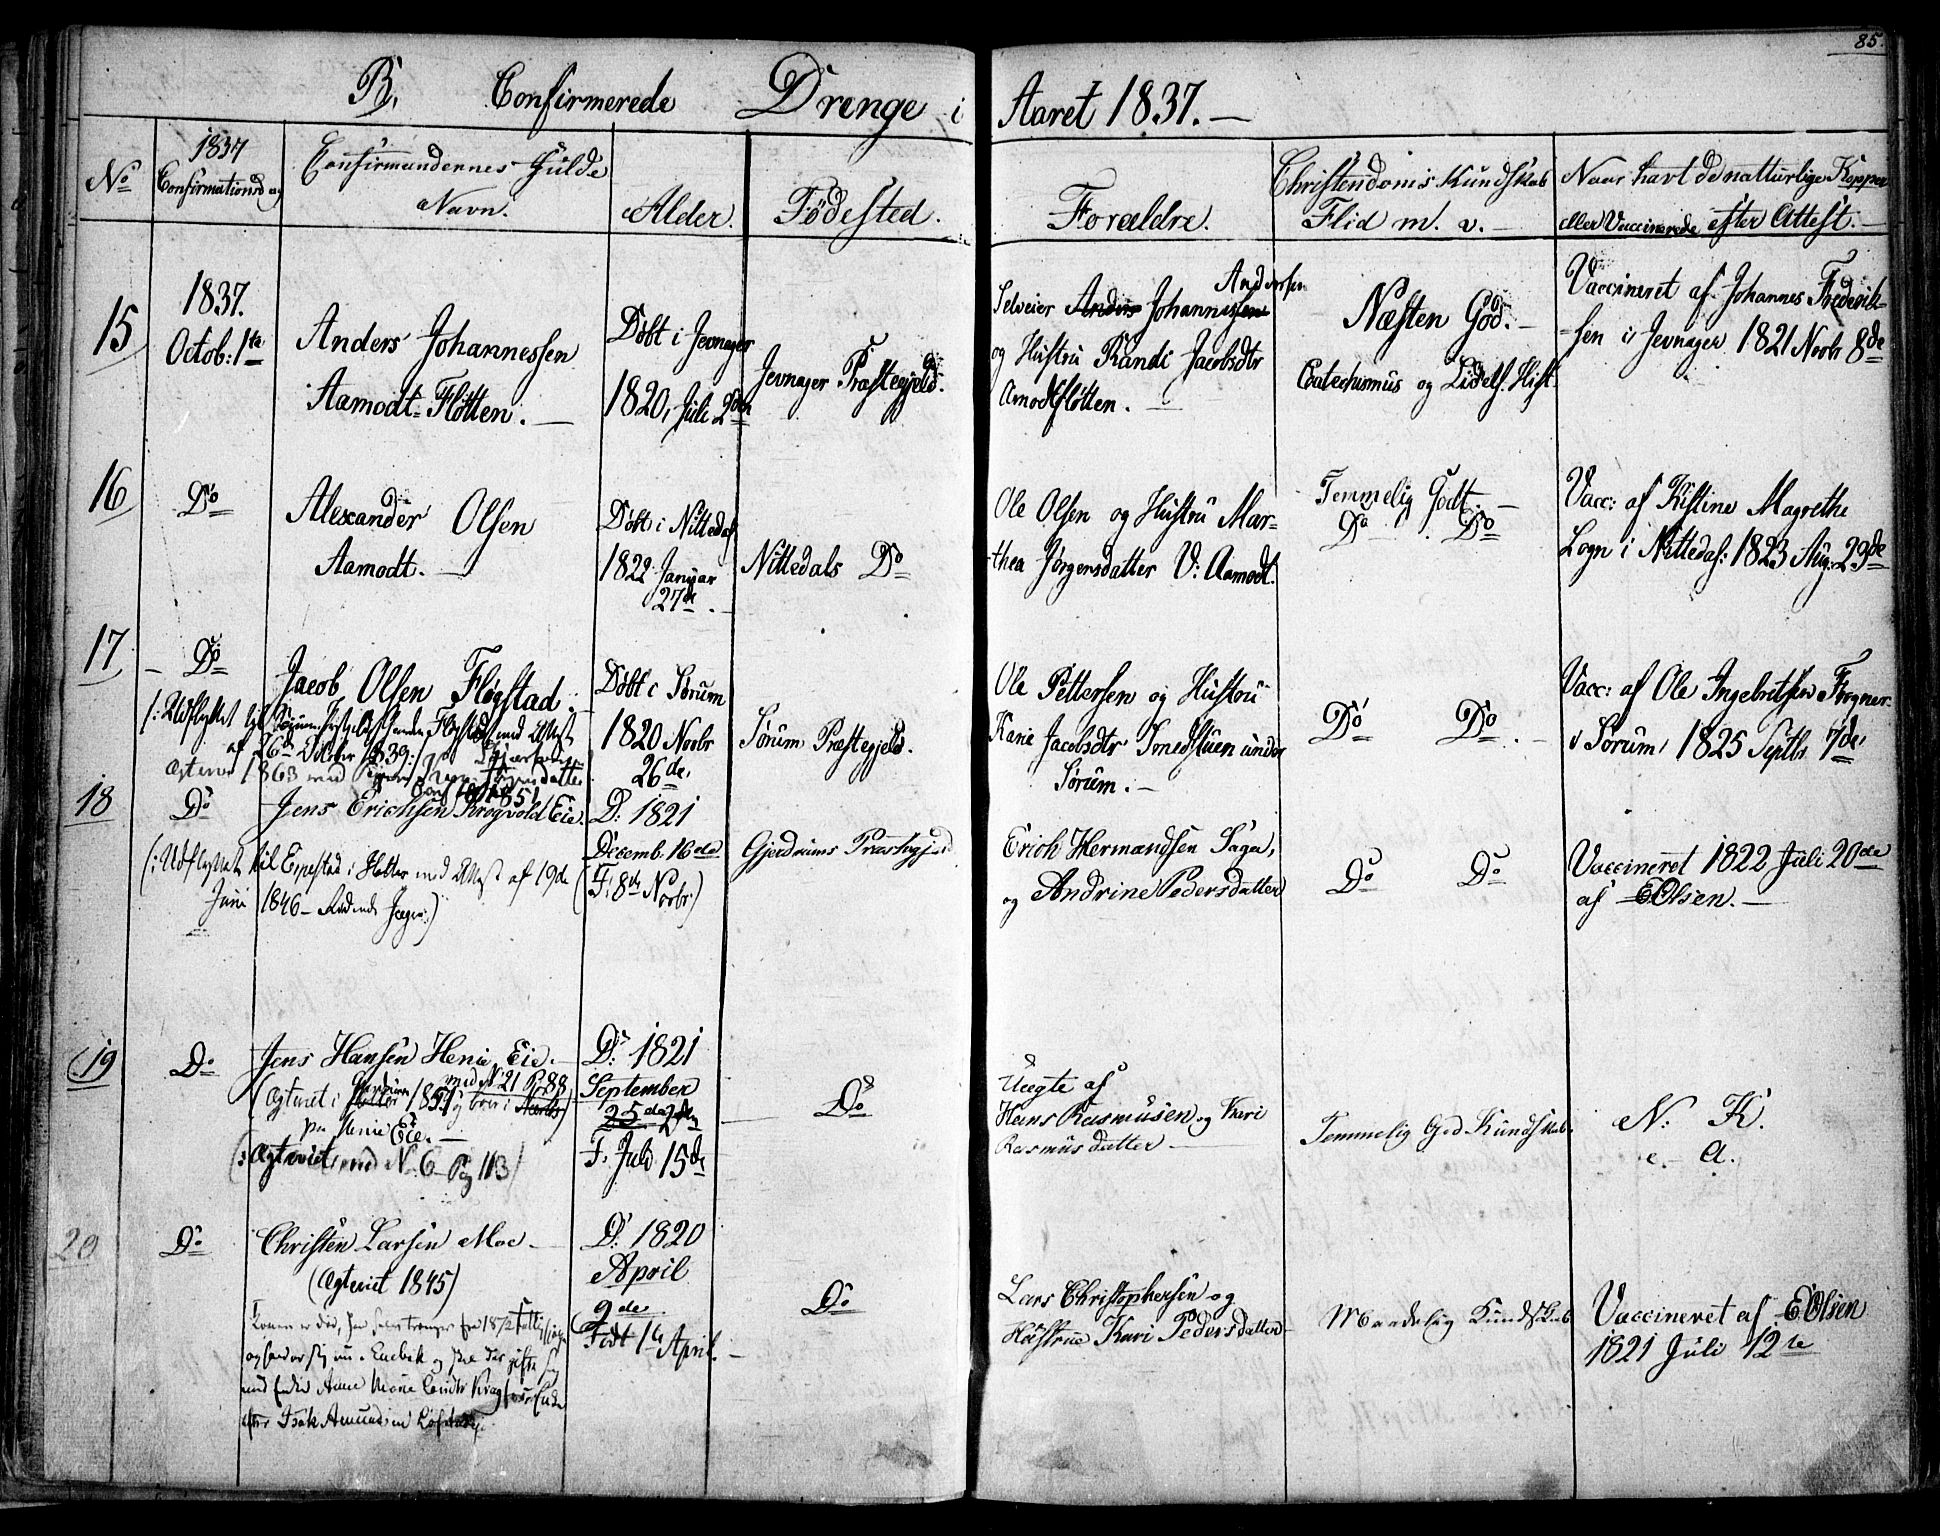 85.
B. Confirmerede Drenge i Aaret 1837.
No
1837
Confirmationsdag
Confirmandernes Fulde
Navn.
Alder.
Fødested.
Forældre.
Christendoms Kundskab
Flid m. v.
Naar havt de natturlige Kopper
eller Vaccinerede efter Attest.
15
1837.
Octob: 1te
Anders Johannessen
Aamodt-Fløtten.
Døbt i Jevnager
1820, Juli 2den
Jevnager Præstegjeld.
Andersen
Selveier Anders Johannessen
og Hustru Randi Jacobsdtr
Amodtfløtten.
Næsten God.
Catechismus og Lidels. Hist.
Vaccineret af Johannes Frederik-
sen i Jevnager 1821 Novbr 8de
16
Do
Alexander Olsen
Aamodt.
Døbt i Nittedal
1822 Januar
27de
Nittedals Do
Ole Olsen og Hustru Mar-
thea Jørgensdatter V: Aamodt.
Temmelig Godt.
Do Do
Vacc: af Kistine Magrethe
Logn i Nittedal: 1823 Aug: 29de
17
Do
Jacob Olsen Fløgstad.
(: Udflyttet til
af 26de October 1839:)
1863 med
1851
Døbt i Sørum
1820 Novbr
26de
Sørum Præstegjeld.
Ole Pettersen og Hustru
Karie Jacobsdtr Smedstuen under
Sørum.
Do Do
Vacc: af Ole Ingebretsen Frogner
i Sørum, 1825 Septbr 7de
18
Do
Jens Erichsen Krogvold Eie.
(: Udflyttet til i Holter med Attest af 19de
Juni 1846
D: 1821
Decemb. 16de
(F: 8de Novbr)
Gjerdrums Præstegjeld
Erich Hermandsen Saga,
og Andrine Pedersdatter
Do Do
Vaccineret 1822 Juli 20de
af EOlsen.
19
Do
Jens Hansen Henie Eie.
med No 21 Pg 88
(Ægteviet i Holter 1851 og boer i
paa Henie Eie.
(: Ægteviet med No 6 Pag 113)
D: 1821
September
25de 2den
F. Juli 15de
Do
Uægte af
Hans Rasmusen og Kari
Rasmusdatter
Temmelig God Kundskab.
N: K.
e. A.
20
Do
Christen Larsen Moe
(Ægteviet 1845)
Konen er død, 1872
og Enebak og skal der gifte sig
med Enke Anne Marie
efter Isak Amundsen
D: 1820
April
9de
Født 1te April.
Do
Lars Christophersen og
Hustrue Kari Pedersdatter
Maadelig Kundskab
Vaccineret af EOlsen
1821 Juli 12te